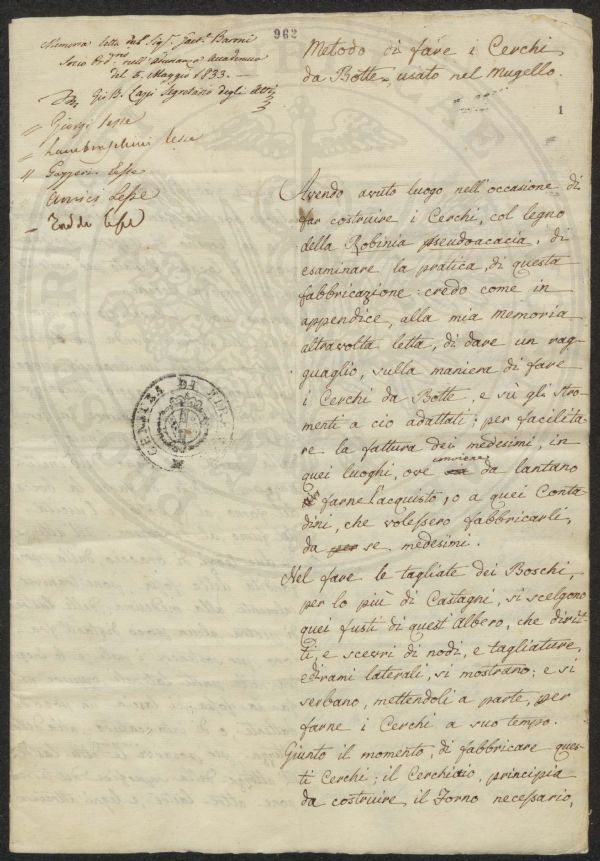 962
Memoria letta dal Sig.r Gaet.o Baroni
Socio Ord.rio nell'Adunanza Accademica
del 5. Maggio 1833.
Gio. B. Lapi Segretario degli Atti
Giorgi lesse
Lambruschini lesse
Gazzeri lesse
Amici Lesse
Taddei lesse
Metodo di fare i Cerchi
da Botte, usato nel Mugello.
1
Avendo avuto luogo nell'occasione di
far costruire i Cerchi, col legno
della Robinia pseudoacacia, di
esaminare la pratica, di questa
fabbricazione: credo come in
appendice, alla mia memoria
altravolta letta, di dare un rag-
guaglio, sulla maniera di fare
i Cerchi da Botte, e sù gli stro-
menti a ciò adattati; per facilita-
re la fattura dei medesimi, in
quei luoghi, ove conviene da lontano
farne l'acquisto, o a quei Conta-
dini, che volessero fabbricarli,
da per se medesimi.
Nel fare le tagliate dei Boschi,
per lo più di Castagni, si scelgono
quei fusti di quest'albero, che dirit-
ti, e scevri di nodi, e tagliature,
e di rami laterali, si mostrano; e si
serbano, mettendoli a parte, per
farne i Cerchi a suo tempo.
Giunto il momento, di fabbricare ques-
ti Cerchi; il Cerchiaio, principia
da costruire, il Forno necessario,